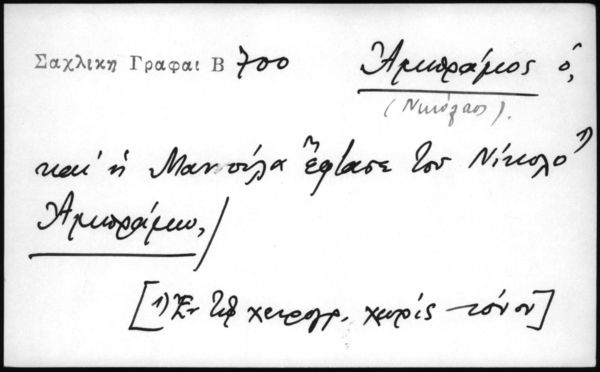 Σαχλικη Γραφαι Β 700
Ἀμπράμος ὁ,
(Νικόλαος).
καὶ ἡ Μαντίλα ἔφτασε τοῦ Νίκολο 1)
Ἀμπράμου,/
[1) Ἐν τῷ χειρογρ. χωρὶς τόνον]